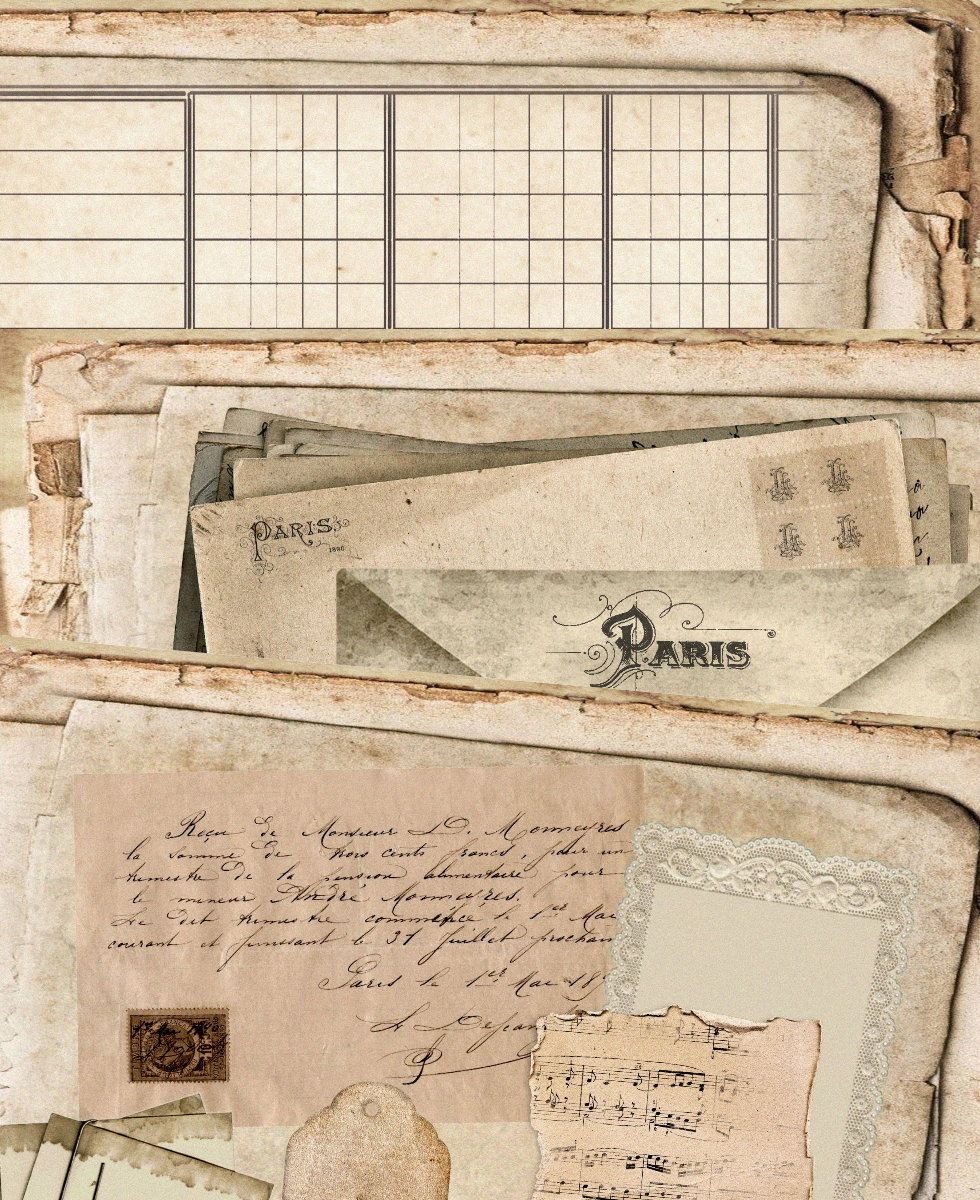 PARIS
1890
PARIS
Reçu de Monsieur D. Monneyres
la somme de trois cents francs, pour un
trimestre de la pension alimentaire pour
le mineur André Monneyres.
Le dit trimestre commence le 1er Mai
courant et finissant le 31 Juillet prochain
Paris le 1er Mai 18